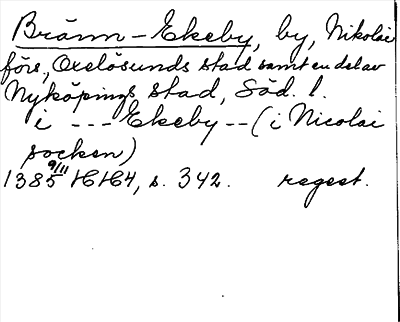 Bränn-Ekeby, by, Nikolai
förs, Oxelösunds stad samt en del av
Nyköpings stad, Söd. l.
i --- Ekeby -- (i Nicolai
socken)
1385 9/11 HH4, s. 342. regest.